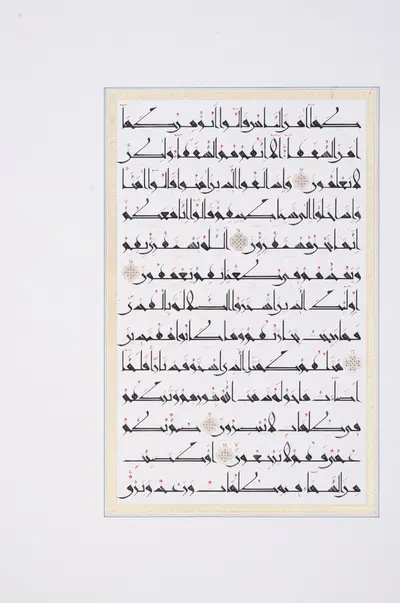 كما آمن الناس قالوا أنؤمن كما
آمن السفهاء ألا إنهم هم السفهاء ولكن
لا يعلمون وإذا لقوا الذين آمنوا قالوا آمنا
وإذا خلوا إلى شياطينهم قالوا إنا معكم
إنما نحن مستهزؤن الله يستهزئ بهم
ويمدهم في طغيانهم يعمهون
أولئك الذين اشتروا الضلالة بالهدى
فما ربحت تجارتهم وما كانوا مهتدين
مثلهم كمثل الذي استوقد نارا فلما
أضاءت ما حوله ذهب الله بنورهم وتركهم
في ظلمات لا يبصرون صم بكم
عمي فهم لا يرجعون أو كصيب
من السماء فيه ظلمات ورعد وبرق